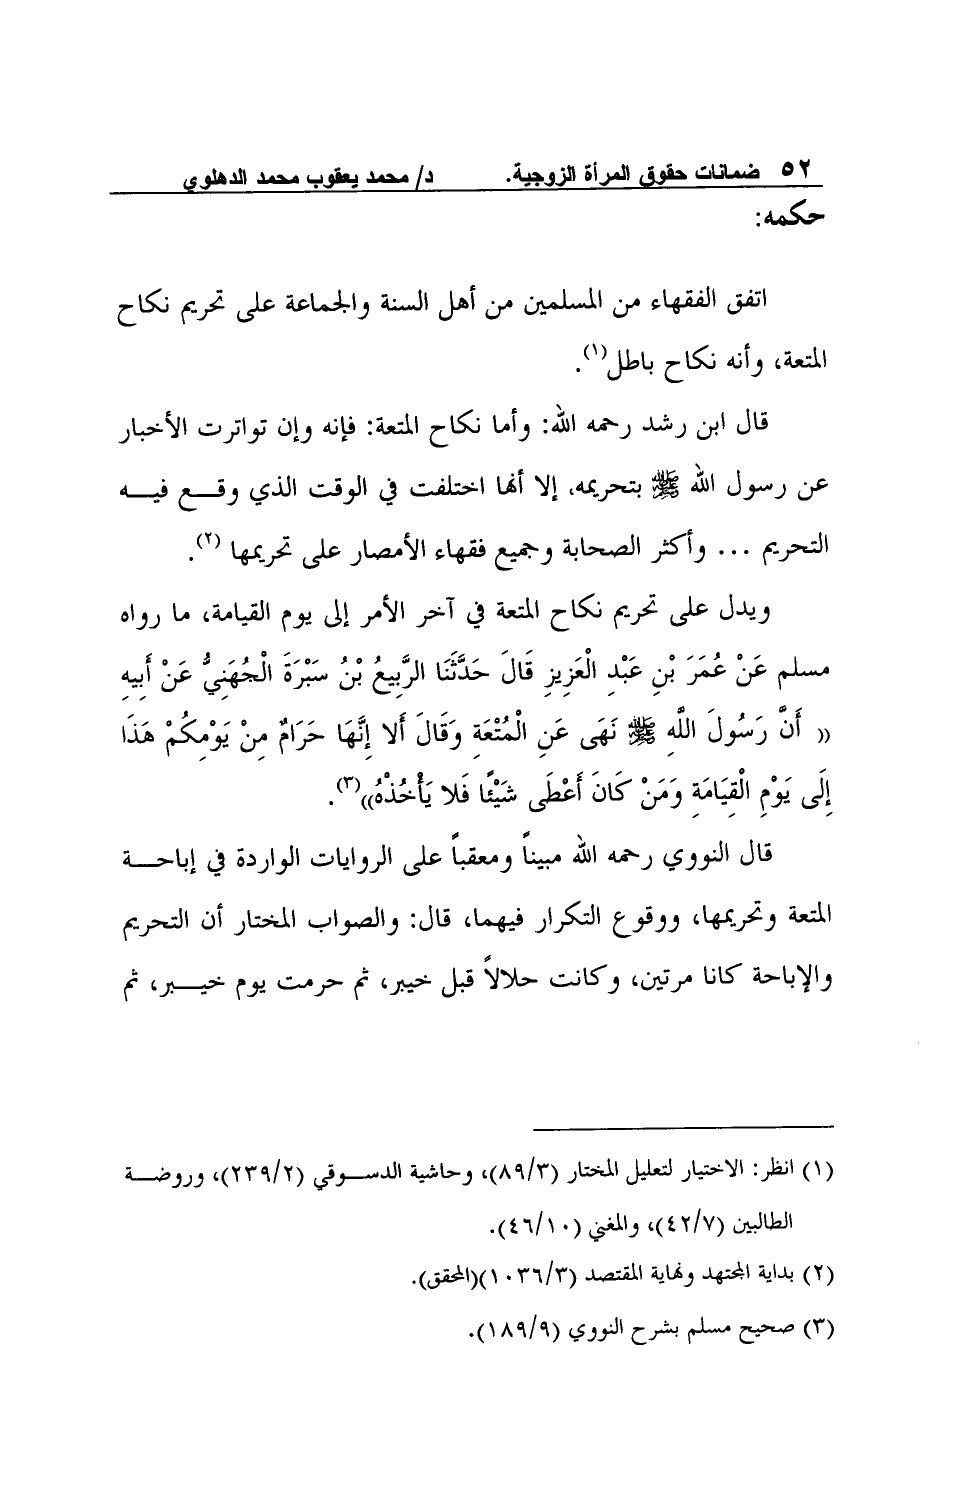 ٥٢ ضمانات حقوق المرأة الزوجية. د/ محمد يعقوب محمد الدهلوي
حكمه:
اتفق الفقهاء من المسلمين من أهل السنة والجماعة على تحريم نكاح
المتعة، وأنه نكاح باطل(١).
قال ابن رشد رحمه الله: وأما نكاح المتعة: فإنه وإن تواترت الأخبار
عن رسول الله ﷺ بتحريمه، إلا أنها اختلفت في الوقت الذي وقـــع فيـــه
التحريم ... وأكثر الصحابة وجميع فقهاء الأمصار على تحريمها (٢).
ويدل على تحريم نكاح المتعة في آخر الأمر إلى يوم القيامة، ما رواه
مسلم عَنْ عُمَرَ بْنِ عَبْدِ الْعَزِيزِ قَالَ حَدَّثَنَا الرَّبِيعُ بْنُ سَبْرَةَ الْجُهَنِيُّ عَنْ أَبِيهِ
(( أَنَّ رَسُولَ اللَّهِ ﷺ نَهَى عَنِ الْمُتْعَةِ وَقَالَ أَلا إِنَّهَا حَرَامٌ مِنْ يَوْمِكُمْ هَذَا
إِلَى يَوْمِ الْقِيَامَةِ وَمَنْ كَانَ أَعْطَى شَيْئًا فَلا يَأْخُذْهُ))(٣).
قال النووي رحمه الله مبيناً ومعقباً على الروايات الواردة في إباحـــة
المتعة وتحريمها، ووقوع التكرار فيهما، قال: والصواب المختار أن التحريم
والإباحة كانا مرتين، وكانت حلالاً قبل خيبر، ثم حرمت يوم خيـــبر، ثم
(١) انظر: الاختيار لتعليل المختار (٨٩/٣)، وحاشية الدســوقي (٢٣٩/٢)، وروضـــة
الطالبين (٤٢/٧)، والمغني (٤٦/١٠).
(٢) بداية المجتهد ونهاية المقتصد (١٠٣٦/٣)(المحقق).
(٣) صحيح مسلم بشرح النووي (١٨٩/٩).